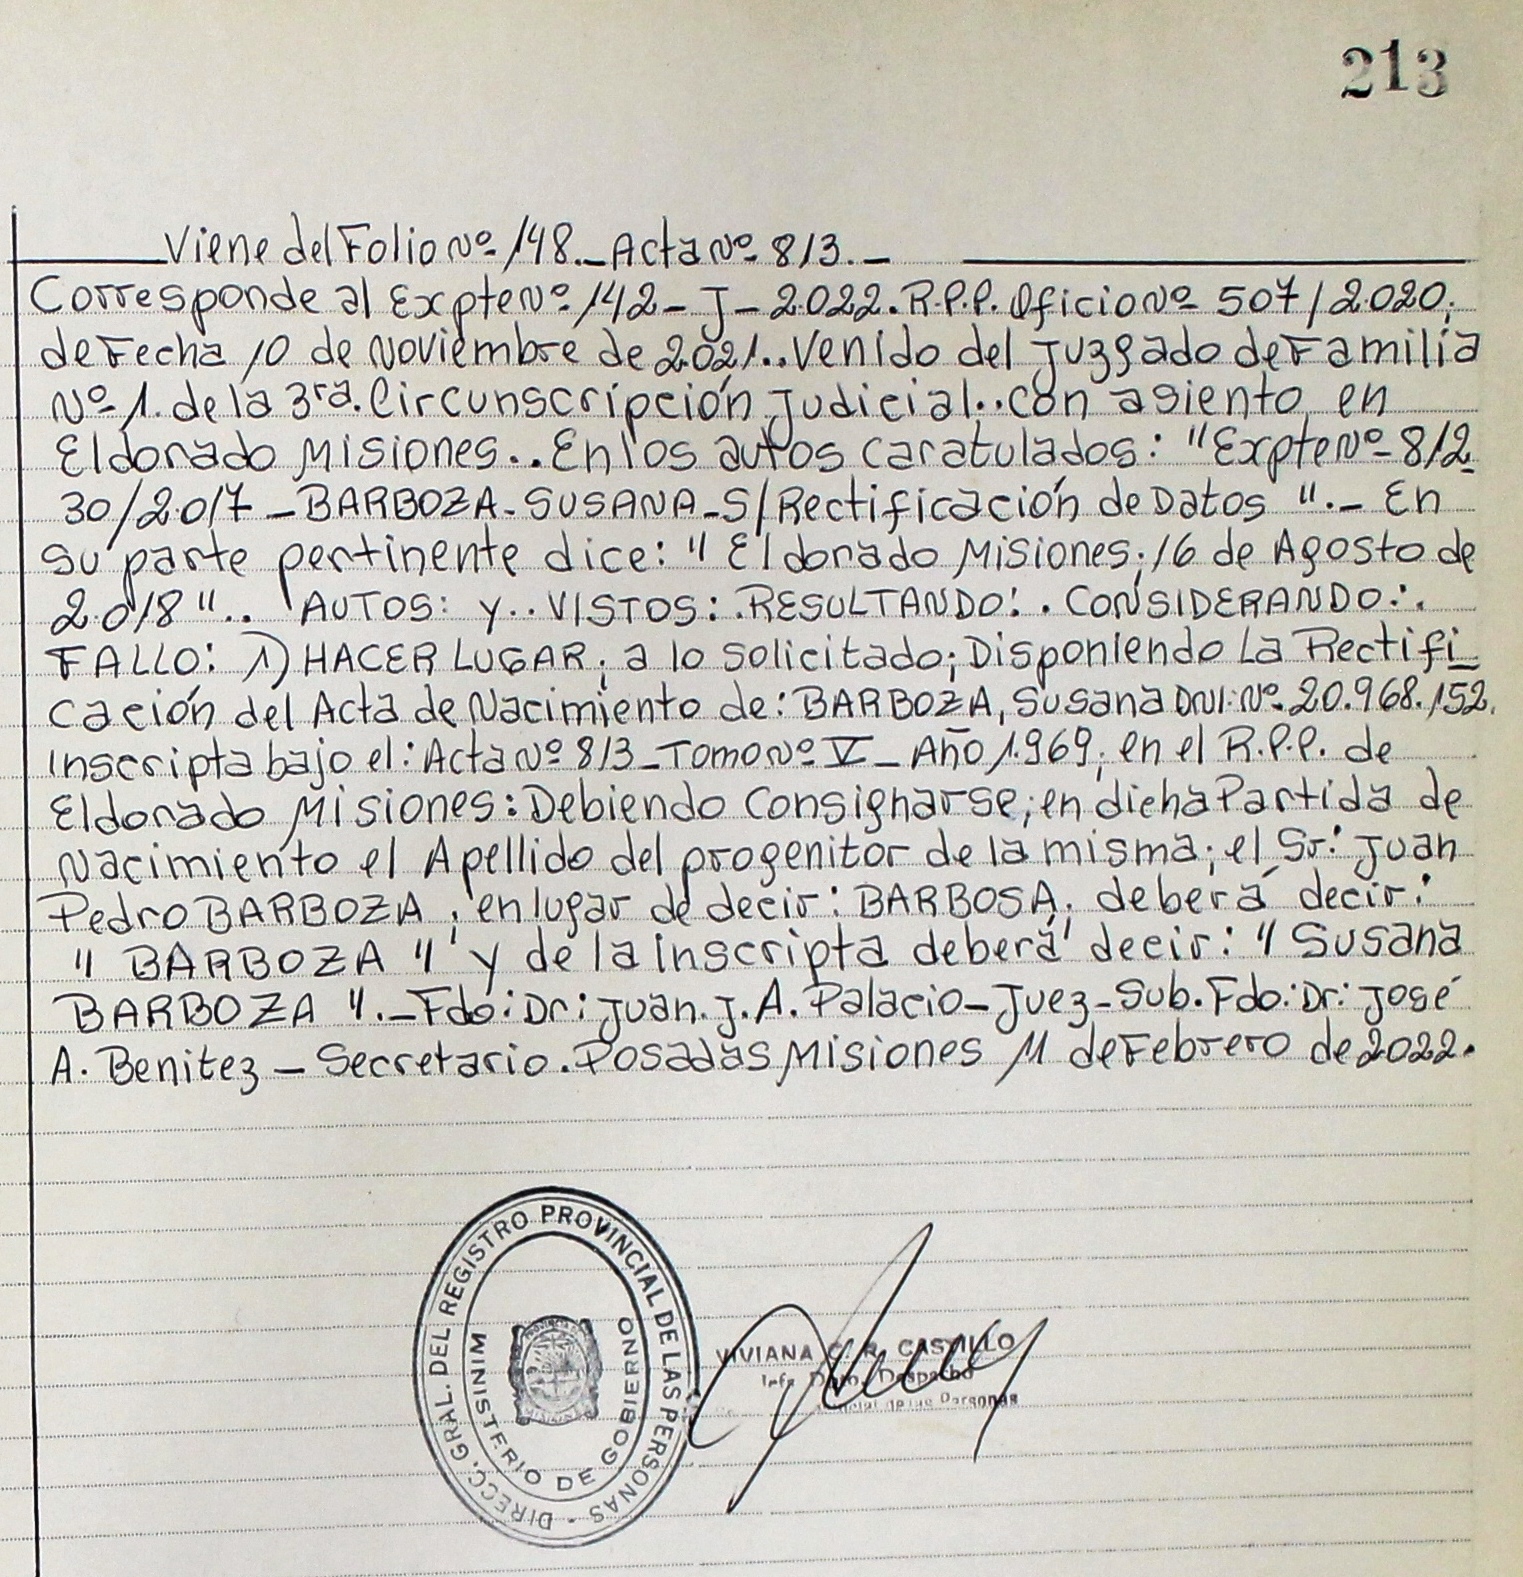 213
Viene del Folio Nº 148._ Acta Nº 813._
Corresponde al Expte Nº 142_ J_ 2.022. R.P.P. Oficio Nº 507/2.020,
de Fecha 10 de Noviembre de 2.021.. Venido del Juzgado de Familia
Nº 1. de la 3ra. Circunscripción Judicial.. con asiento en
Eldorado Misiones.. En los autos caratulados: "Expte Nº 812
30/2.017 _ BARBOZA_ SUSANA_ S/Rectificación de Datos ".- En
su parte pertinente dice: " Eldorado Misiones, 16 de Agosto de
2.018".. AUTOS: y.. VISTOS: .RESULTANDO: . CONSIDERANDO:.
FALLO: 1) HACER LUGAR, a lo solicitado; Disponiendo La Rectifi
cación del Acta de Nacimiento de: BARBOZA, Susana DNI. Nº. 20.968.152.
Inscripta bajo el: Acta Nº 813_ Tomo Nº V_ Año 1.969, en el R.P.P. de
Eldorado Misiones: Debiendo Consignarse, en dicha Partida de
Nacimiento el Apellido del progenitor de la misma; el Sr: Juan
Pedro BARBOZA, en lugar de decir: BARBOSA, deberá decir:
" BARBOZA " y de la Inscripta deberá decir: " Susana
BARBOZA ".- Fdo: Dr: Juan. J. A. Palacio_ Juez_ Sub. Fdo: Dr: José
A. Benitez _ Secretario. Posadas Misiones 11 de Febrero de 2.022.
DIRECC. GRAL. DEL REGISTRO PROVINCIAL DE LAS PERSONAS -
MINISTERIO DE GOBIERNO
VIVIANA C. R. CASTILLO
Dpto. Despacho
de las Personas